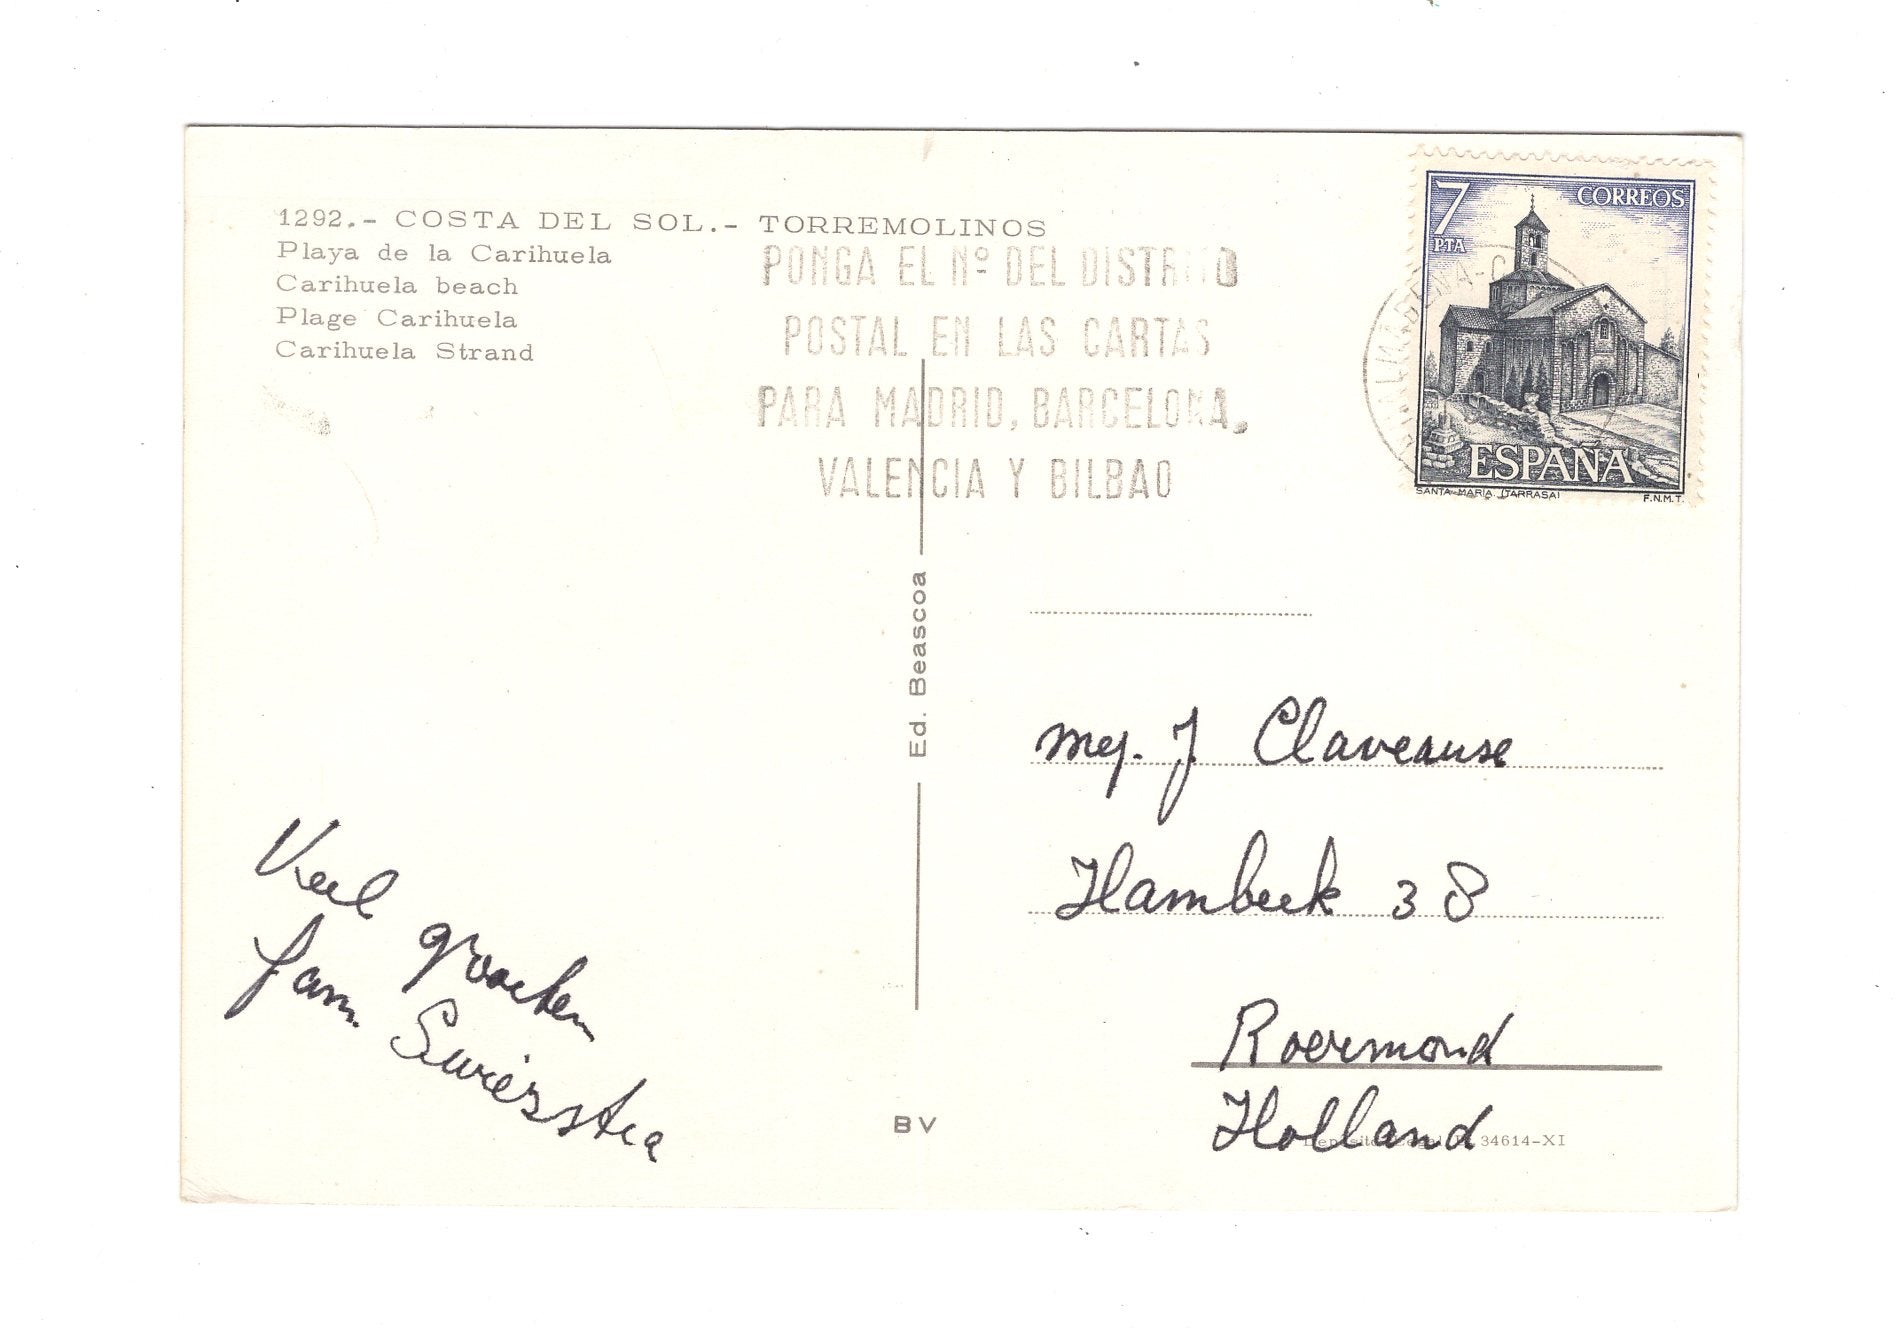 1292.- COSTA DEL SOL.- TORREMOLINOS
Playa de la Carihuela
Carihuela beach
Plage Carihuela
Carihuela Strand
PONGA EL Nº DEL DISTRITO
POSTAL EN LAS CARTAS
PARA MADRID, BARCELONA,
VALENCIA Y BILBAO
7
PTA
CORREOS
ESPAÑA
SANTA MARIA (TARRASA)
F.N.M.T.
Ed. Beascoa
Veel groeten
fam.
mej. J Claveause
Hambeek 38
Roermond
Holland
BV
Depósito Legal B. 34614-XI